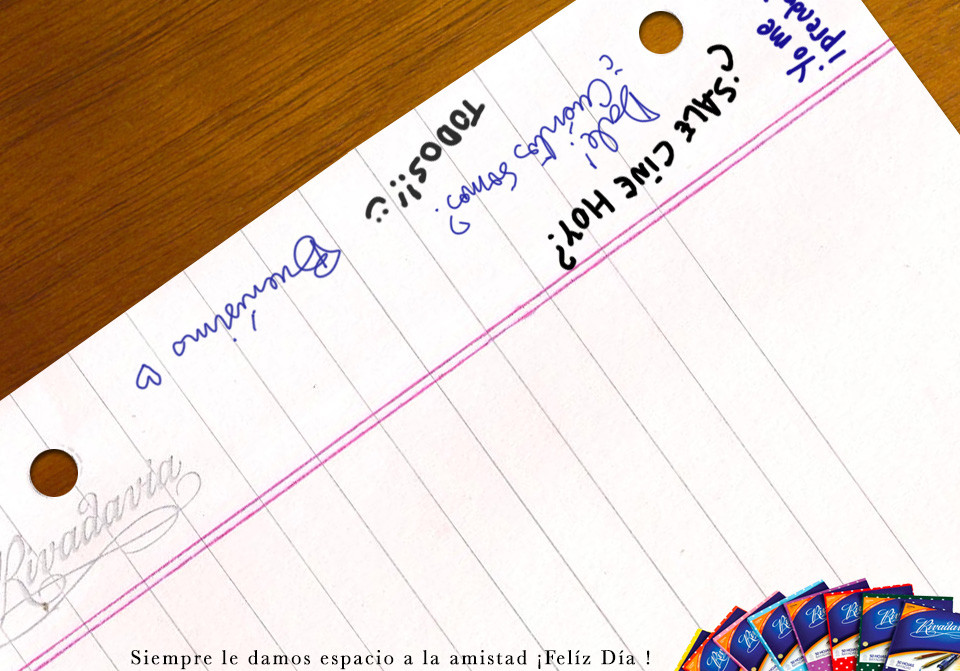 ¿SALE CINE HOY?
Yo me
¡prend
Dale!
¿Cuántos somos?
TODOS!!
Buenísimo
Rivadavia
Siempre le damos espacio a la amistad ¡Felíz Día !
Rivadavia